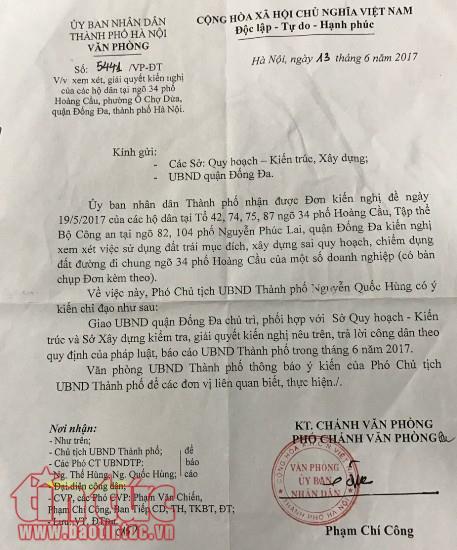 ỦY BAN NHÂN DÂN
THÀNH PHỐ HÀ NỘI
VĂN PHÒNG
Số: 5441 /VP-ĐT
V/v xem xét, giải quyết kiến nghị
của các hộ dân tại ngõ 34 phố
Hoàng Cầu, phường Ô Chợ Dừa,
quận Đống Đa, thành phố Hà Nội.
CỘNG HÒA XÃ HỘI CHỦ NGHĨA VIỆT NAM
Độc lập - Tự do - Hạnh phúc
Hà Nội, ngày 13 tháng 6 năm 2017
Kính gửi:
- Các Sở: Quy hoạch – Kiến trúc, Xây dựng;
- UBND quận Đống Đa.
Ủy ban nhân dân Thành phố nhận được Đơn kiến nghị đề ngày
19/5/2017 của các hộ dân tại Tổ 42, 74, 75, 87 ngõ 34 phố Hoàng Cầu, Tập thể
Bộ Công an tại ngõ 82, 104 phố Nguyễn Phúc Lai, quận Đống Đa kiến nghị
xem xét việc sử dụng đất trái mục đích, xây dựng sai quy hoạch, chiếm dụng
đất đường đi chung ngõ 34 phố Hoàng Cầu của một số doanh nghiệp (có bản
chụp Đơn kèm theo).
Về việc này, Phó Chủ tịch UBND Thành phố Nguyễn Quốc Hùng có ý
kiến chỉ đạo như sau:
Giao UBND quận Đống Đa chủ trì, phối hợp với Sở Quy hoạch - Kiến
trúc và Sở Xây dựng kiểm tra, giải quyết kiến nghị nêu trên, trả lời công dân theo
quy định của pháp luật, báo cáo UBND Thành phố trong tháng 6 năm 2017.
Văn phòng UBND Thành phố thông báo ý kiến của Phó Chủ tịch
UBND Thành phố để các đơn vị liên quan biết, thực hiện./.
Nơi nhận:
- Như trên;
- Chủ tịch UBND Thành phố; để
- Các Phó CT UBNDTP: báo
Ng. Thế Hùng, Ng. Quốc Hùng; cáo
- Đại diện công dân;
- CVP, các Phó CVP: Phạm Văn Chiến,
Phạm Chí Công, Ban Tiếp CD, TH, TKBT, ĐT;
- Lưu: VT, ĐTĐa.
KT. CHÁNH VĂN PHÒNG
PHÓ CHÁNH VĂN PHÒNG
CỘNG HÒA X.H.C.N VIỆT NAM
VĂN PHÒNG
ỦY BAN
NHÂN DÂN
THÀNH PHỐ HÀ NỘI
Phạm Chí Công
tin tức
baotintuc.vn